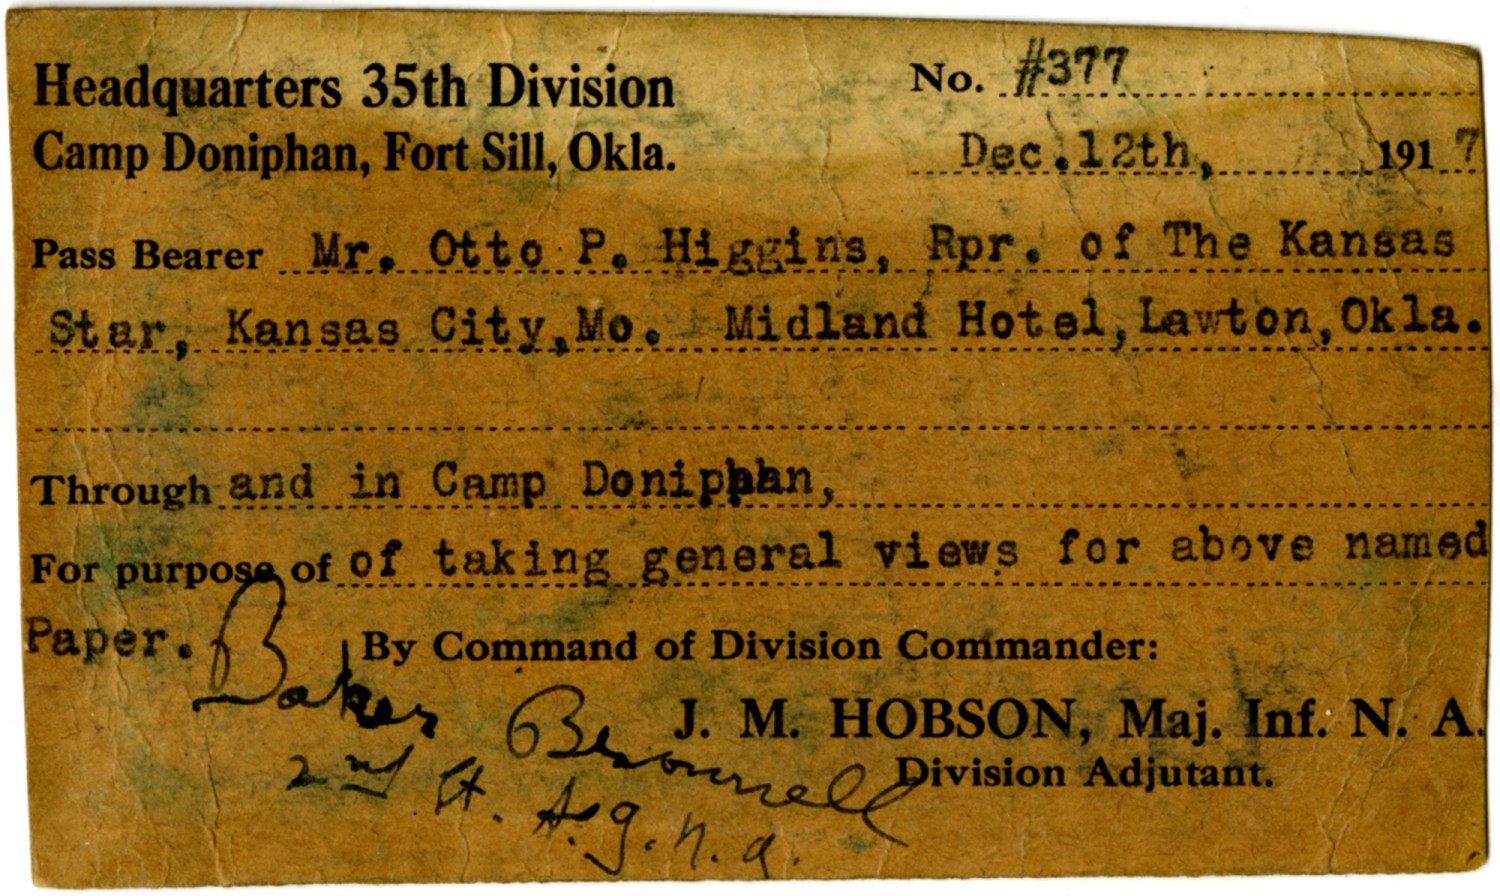 Headquarters 35th Division
No. #377
Camp Doniphan, Fort Sill, Okla.
Dec.12th, 1917
Pass Bearer Mr. Otto P. Higgins, Rpr. of The Kansas
Star, Kansas City,Mo. Midland Hotel,Lawton,Okla.
Through and in Camp Doniphan,
For purpose of of taking general views for above named
Paper.
By Command of Division Commander:
Baker Brownell
J. M. HOBSON, Maj. Inf. N. A.
2nd Lt. A.G. N.A.
Division Adjutant.